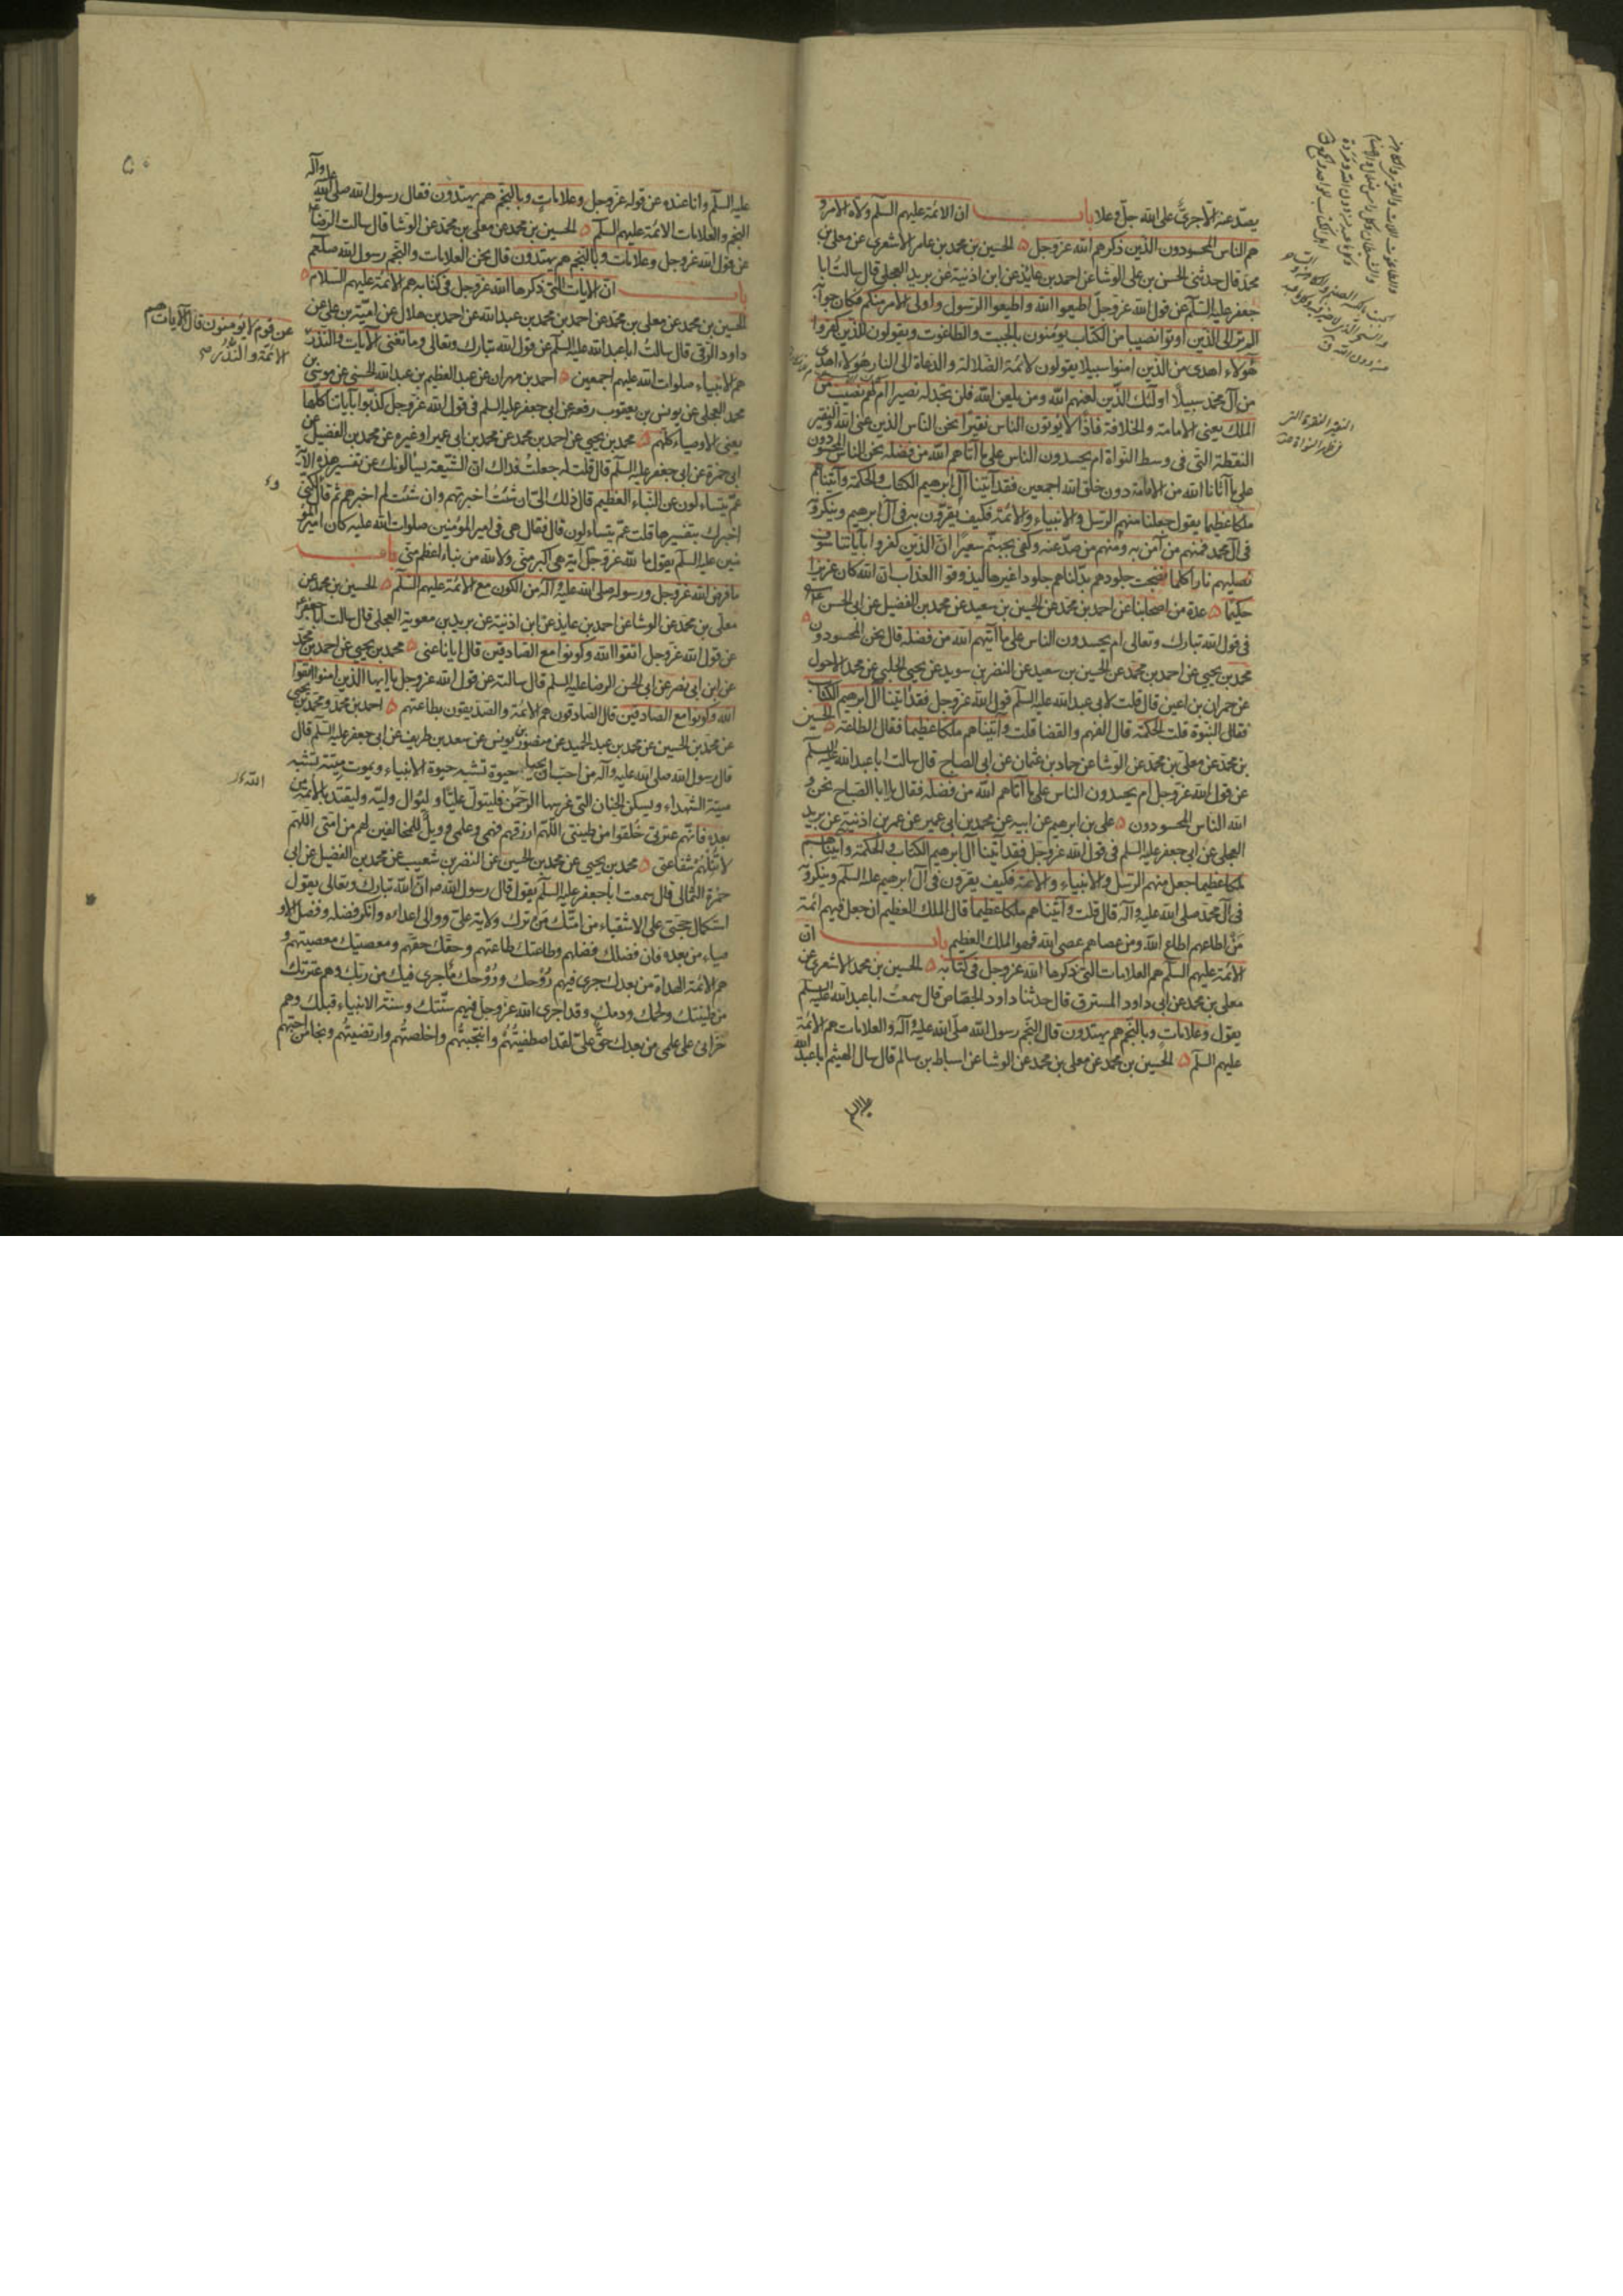 يصدّ عنه الّا جرىّ على الله جلّ وعلا باب ان الائمة عليهم السلم ولاة الامر و
هم الناس المحسودون الذين ذكرهم الله عز وجل ۵ الحسين بن محمد بن عامر الاشعرى عن معلى بن
محمد قال حدثنى الحسن بن على الوشا عن احمد بن عايذ عن ابن اذنية عن بريد العجلى قال سالت ابا
جعفر عليه السلم عن قول الله عز وجل اطيعوا الله واطيعوا الرسول واولى الامر منكم فكان جوابه
الم تر الى الذين اوتوا نصيبا من الكتاب يومنون بالجبت والطاغوت ويقولون للذين كفروا
هولاء اهدى من الذين امنوا سبيلا يقولون لائمة الضلالة والدعاة الى النار هولاء اهدى
من آل محمد سبيلا اولئك الذين لعنهم الله ومن يلعن الله فلن تجد له نصيرا ام لهم نصيب من
الملك يعنى الامامة والخلافة فاذا لا يوتون الناس نقيرا نحن الناس الذين عنى الله والنقير
النقطة التى فى وسط النواة ام يحسدون الناس على ما آتاهم الله من فضله نحن الناس المحسودون
على ما آتانا الله من الامامة دون خلق الله اجمعين فقد آتينا آل ابرهيم الكتاب والحكمة وآتيناهم
ملكا عظيما يقول جعلنا منهم الرسل والانبياء والائمة فكيف يقرّون به فى آل ابرهيم وينكرونه
فى آل محمد فمنهم من آمن به ومنهم من صدّ عنه وكفى بجهنم سعيرا ان الذين كفروا بآياتنا سوف
نصليهم نارا كلما نضجت جلودهم بدّلناهم جلودا غيرها ليذوقوا العذاب ان الله كان عزيزا
حكيما ۵ عدة من اصحابنا عن احمد بن محمد عن الحسين بن سعيد عن محمد بن الفضيل عن ابى الحسن
فى قول الله تبارك وتعالى ام يحسدون الناس على ما آتيهم الله من فضله قال نحن المحسودون ۵
محمد بن يحيى عن احمد بن محمد عن الحسين بن سعيد عن النضر بن سويد عن يحيى الحلبى عن محمد الاحول
عن حمران بن اعين قال قلت لابى عبد الله عليه السلم قول الله عز وجل فقد آتينا آل ابرهيم الكتاب
فقال النبوة قلت الحكمة قال الفهم والقضا قلت وآتيناهم ملكا عظيما فقال الطاعة ۵ الحسين
بن محمد عن معلى بن محمد عن الوشا عن حماد بن عثمان عن ابى الصباح قال سالت ابا عبد الله عليه السلم
عن قول الله عز وجل ام يحسدون الناس على ما آتاهم الله من فضله فقال يا ابا الصباح نحن و
الله الناس المحسودون ۵ على بن ابرهيم عن ابيه عن محمد بن ابى عمير عن عمر بن اذنية عن بريد
العجلى عن ابى جعفر عليه السلم فى قول الله عز وجل فقد آتينا آل ابرهيم الكتاب والحكمة وآتيناهم
ملكا عظيما جعل منهم الرسل والانبياء والائمة فكيف يقرون فى آل ابرهيم عليه السلم وينكرونه
فى آل محمد صلى الله عليه وآله قال قلت وآتيناهم ملكا عظيما قال الملك العظيم ان جعل فيهم ائمة
من اطاعهم اطاع الله ومن عصاهم عصى الله فهو الملك العظيم باب ان
الائمة عليهم السلم هم العلامات التى ذكرها الله عز وجل فى كتابه ۵ الحسين بن محمد الاشعرى عن
معلى بن محمد عن ابى داود المسترق قال حدثنا داود الجصاص قال سمعت ابا عبد الله عليه السلم
يقول وعلامات وبالنجم هم يهتدون قال النجم رسول الله صلى الله عليه وآله والعلامات هم الائمة
عليهم السلم ۵ الحسين بن محمد عن معلى بن محمد عن الوشا عن اسباط بن سالم قال سال الهيثم ابا عبد الله
عليه السلم وانا عنده عن قوله عز وجل وعلامات وبالنجم هم يهتدون فقال رسول الله صلى الله عليه وآله
النجم والعلامات الائمة عليهم السلم ۵ الحسين بن محمد عن معلى بن محمد عن الوشا قال سالت الرضا
عن قول الله عز وجل وعلامات وبالنجم هم يهتدون قال نحن العلامات والنجم رسول الله صلعم
باب ان الايات التى ذكرها الله عز وجل فى كتابه هم الائمة عليهم السلام ۵
الحسين بن محمد عن معلى بن محمد عن احمد بن محمد بن عبد الله عن احمد بن هلال عن امية بن على عن
داود الرقى قال سالت ابا عبد الله عليه السلم عن قول الله تبارك وتعالى وما تغنى الآيات والنذر
عن قوم لا يومنون قال الآيات هم
الائمة والنذر
هم الانبياء صلوات الله عليهم اجمعين ۵ احمد بن مهران عن عبد العظيم بن عبد الله الحسنى عن موسى بن
محمد العجلى عن يونس بن يعقوب رفعه عن ابى جعفر عليه السلم فى قول الله عز وجل كذبوا بآياتنا كلها
يعنى الاوصياء كلهم ۵ محمد بن يحيى عن احمد بن محمد عن محمد بن ابى عمير او غيره عن محمد بن الفضيل عن
ابى حمزة عن ابى جعفر عليه السلم قال قلت له جعلت فداك ان الشيعة يسالونك عن تفسير هذه الآية
عمّ يتساءلون عن النباء العظيم قال ذلك الىّ ان شئت اخبرتهم وان شئت لم اخبرهم ثم قال لكنى
اخبرك بتفسيرها قلت عمّ يتساءلون قال فقال هى فى امير المومنين صلوات الله عليه كان امير المو
منين عليه السلم يقول ما لله عز وجل آية هى اكبر منى ولا لله من نباء اعظم منى باب
ما فرض الله عز وجل ورسوله صلى الله عليه وآله من الكون مع الائمة عليهم السلم ۵ الحسين بن محمد عن
معلى بن محمد عن الوشا عن احمد بن عايذ عن ابن اذنية عن بريد بن معوية العجلى قال سالت ابا جعفر
عن قول الله عز وجل اتقوا الله وكونوا مع الصادقين قال ايانا عنى ۵ محمد بن يحيى عن احمد بن محمد
عن ابن ابى نصر عن ابى الحسن الرضا عليه السلم قال سالته عن قول الله عز وجل يا ايها الذين امنوا اتقوا
الله وكونوا مع الصادقين قال الصادقون هم الائمة والصديقون بطاعتهم ۵ احمد بن محمد ومحمد بن يحيى
عن محمد بن الحسين عن محمد بن عبد الحميد عن منصور بن يونس عن سعد بن طريف عن ابى جعفر عليه السلم قال
قال رسول الله صلى الله عليه وآله من احبّ ان يحيا حيوة تشبه حيوة الانبياء ويموت ميتة تشبه
ميتة الشهداء ويسكن الجنان التى غرسها الرحمن فليتولّ عليّا وليوال وليّه وليقتد بالائمة من
بعده فانهم عترتى خلقوا من طينتى اللهم ارزقهم فهمى وعلمى وويل للمخالفين لهم من امتى اللهم
لا تنلهم شفاعتى ۵ محمد بن يحيى عن محمد بن الحسين عن النضر بن شعيب عن محمد بن الفضيل عن ابى
حمزة الثمالى قال سمعت ابا جعفر عليه السلم يقول قال رسول الله ص ان الله تبارك وتعالى يقول
استكمال حجتى على الاشقياء من امتك من ترك ولاية على ووالى اعداءه وانكر فضله وفضل الاو
صياء من بعده فان فضلك فضلهم وطاعتك طاعتهم وحقك حقهم ومعصيتك معصيتهم و
هم الائمة الهداة من بعدك جرى فيهم روحك وروحك ما جرى فيك من ربك وهم عترتك
من طينتك ولحمك ودمك وقد اجرى الله عز وجل فيهم سنتك وسنة الانبياء قبلك وهم
خزانى على علمى من بعدك حق على لقد اصطفيتهم وانتجبتهم واخلصتهم وارتضيتهم ونجا من احبهم